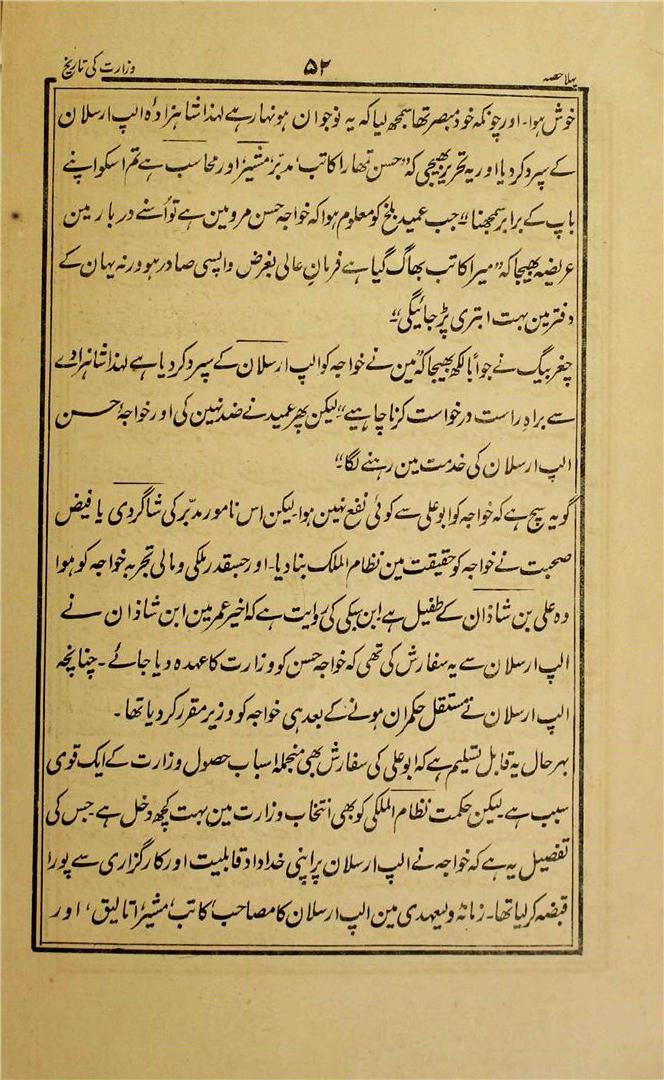 پہلا حصہ ۵۲ وزارت کی تاریخ
خوش ہوا۔ اور چونکہ خود مبصر تھا سمجھ لیا کہ یہ نوجوان ہونہار ہے لہذا شاہزادہ الپ ارسلان
کے سپرد کر دیا اور یہ تحریر بھیجی کہ "حسن تمھارا کاتب، مدبّر، مشیر، اور محاسب ہے تم اسکو اپنے
باپ کے برابر سمجھنا" جب عمید بلخ کو معلوم ہوا کہ خواجہ حسن مرو مین ہے تو اُسنے دربار مین
عریضہ بھیجا کہ "میرا کاتب بھاگ گیا ہے فرمانِ عالی بغرض واپسی صادر ہو ورنہ یہان کے
دفتر مین بہت ابتری پڑ جائیگی"
چغر بیگ نے جواباً لکھ بھیجا کہ "مین نے خواجہ کو الپ ارسلان کے سپرد کر دیا ہے لہذا شاہزادے
سے براہِ راست درخواست کرنا چاہیے" لیکن پھر عمید نے ضد نہین کی اور خواجۂ حسن
الپ ارسلان کی خدمت مین رہنے لگا"
گو یہ سچ ہے کہ خواجہ کو ابو علی سے کوئی نفع نہین ہوا لیکن اس نامور مدبّر کی شاگردی یا فیض
صحبت نے خواجہ کو حقیقت مین نظام الملک بنا دیا۔ اور جسقدر ملکی و مالی تجربہ خواجہ کو ہوا
وہ علی بن شاذان کے طفیل ہے ابن سبکی کی روایت ہے کہ اخیر عمر مین ابن شاذان نے
الپ ارسلان سے یہ سفارش کی تھی کہ خواجہ حسن کو وزارت کا عہدہ دیا جائے۔ چنانچہ
الپ ارسلان نے مستقل حکمران ہونے کے بعد ہی خواجہ کو وزیر مقرر کر دیا تھا۔
بہر حال یہ قابل تسلیم ہے کہ ابو علی کی سفارش بھی منجملہ اسباب حصول وزارت کے ایک قوی
سبب ہے لیکن حکمت نظام الملکی کو بھی انتخاب وزارت مین بہت کچھ دخل ہے جس کی
تفصیل یہ ہے کہ خواجہ نے الپ ارسلان پر اپنی خداداد قابلیت اور کارگزاری سے پورا
قبضہ کر لیا تھا۔ زمانۂ ولیعہدی مین الپ ارسلان کا مصاحب، کاتب، مشیر، اتالیق، اور